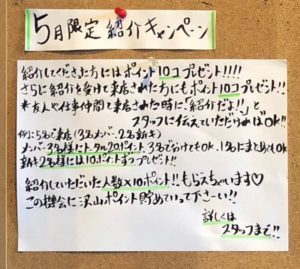 5月限定 紹介キャンペーン
紹介してくださった方にはポイント10コプレゼント!!!!
さらに紹介を受けて来店された方にもポイント10コプレゼント!!
*友人や仕事仲間で来店された時に「紹介だよ!!」と
スタッフに伝えていただければOK!!
例に5名で来店(3名メンバー、2名新キ)
メンバー3名様にトータル20ポイント、3名でわけてもOK、1名にまとめてもOK
新キ2名様には10ポイントずつプレゼント!!
紹介していただいた人数×10ポイント!!もらえちゃいます♡
この機会に沢山ポイント貯めていって下さい!!
詳しくは
スタッフまで!!